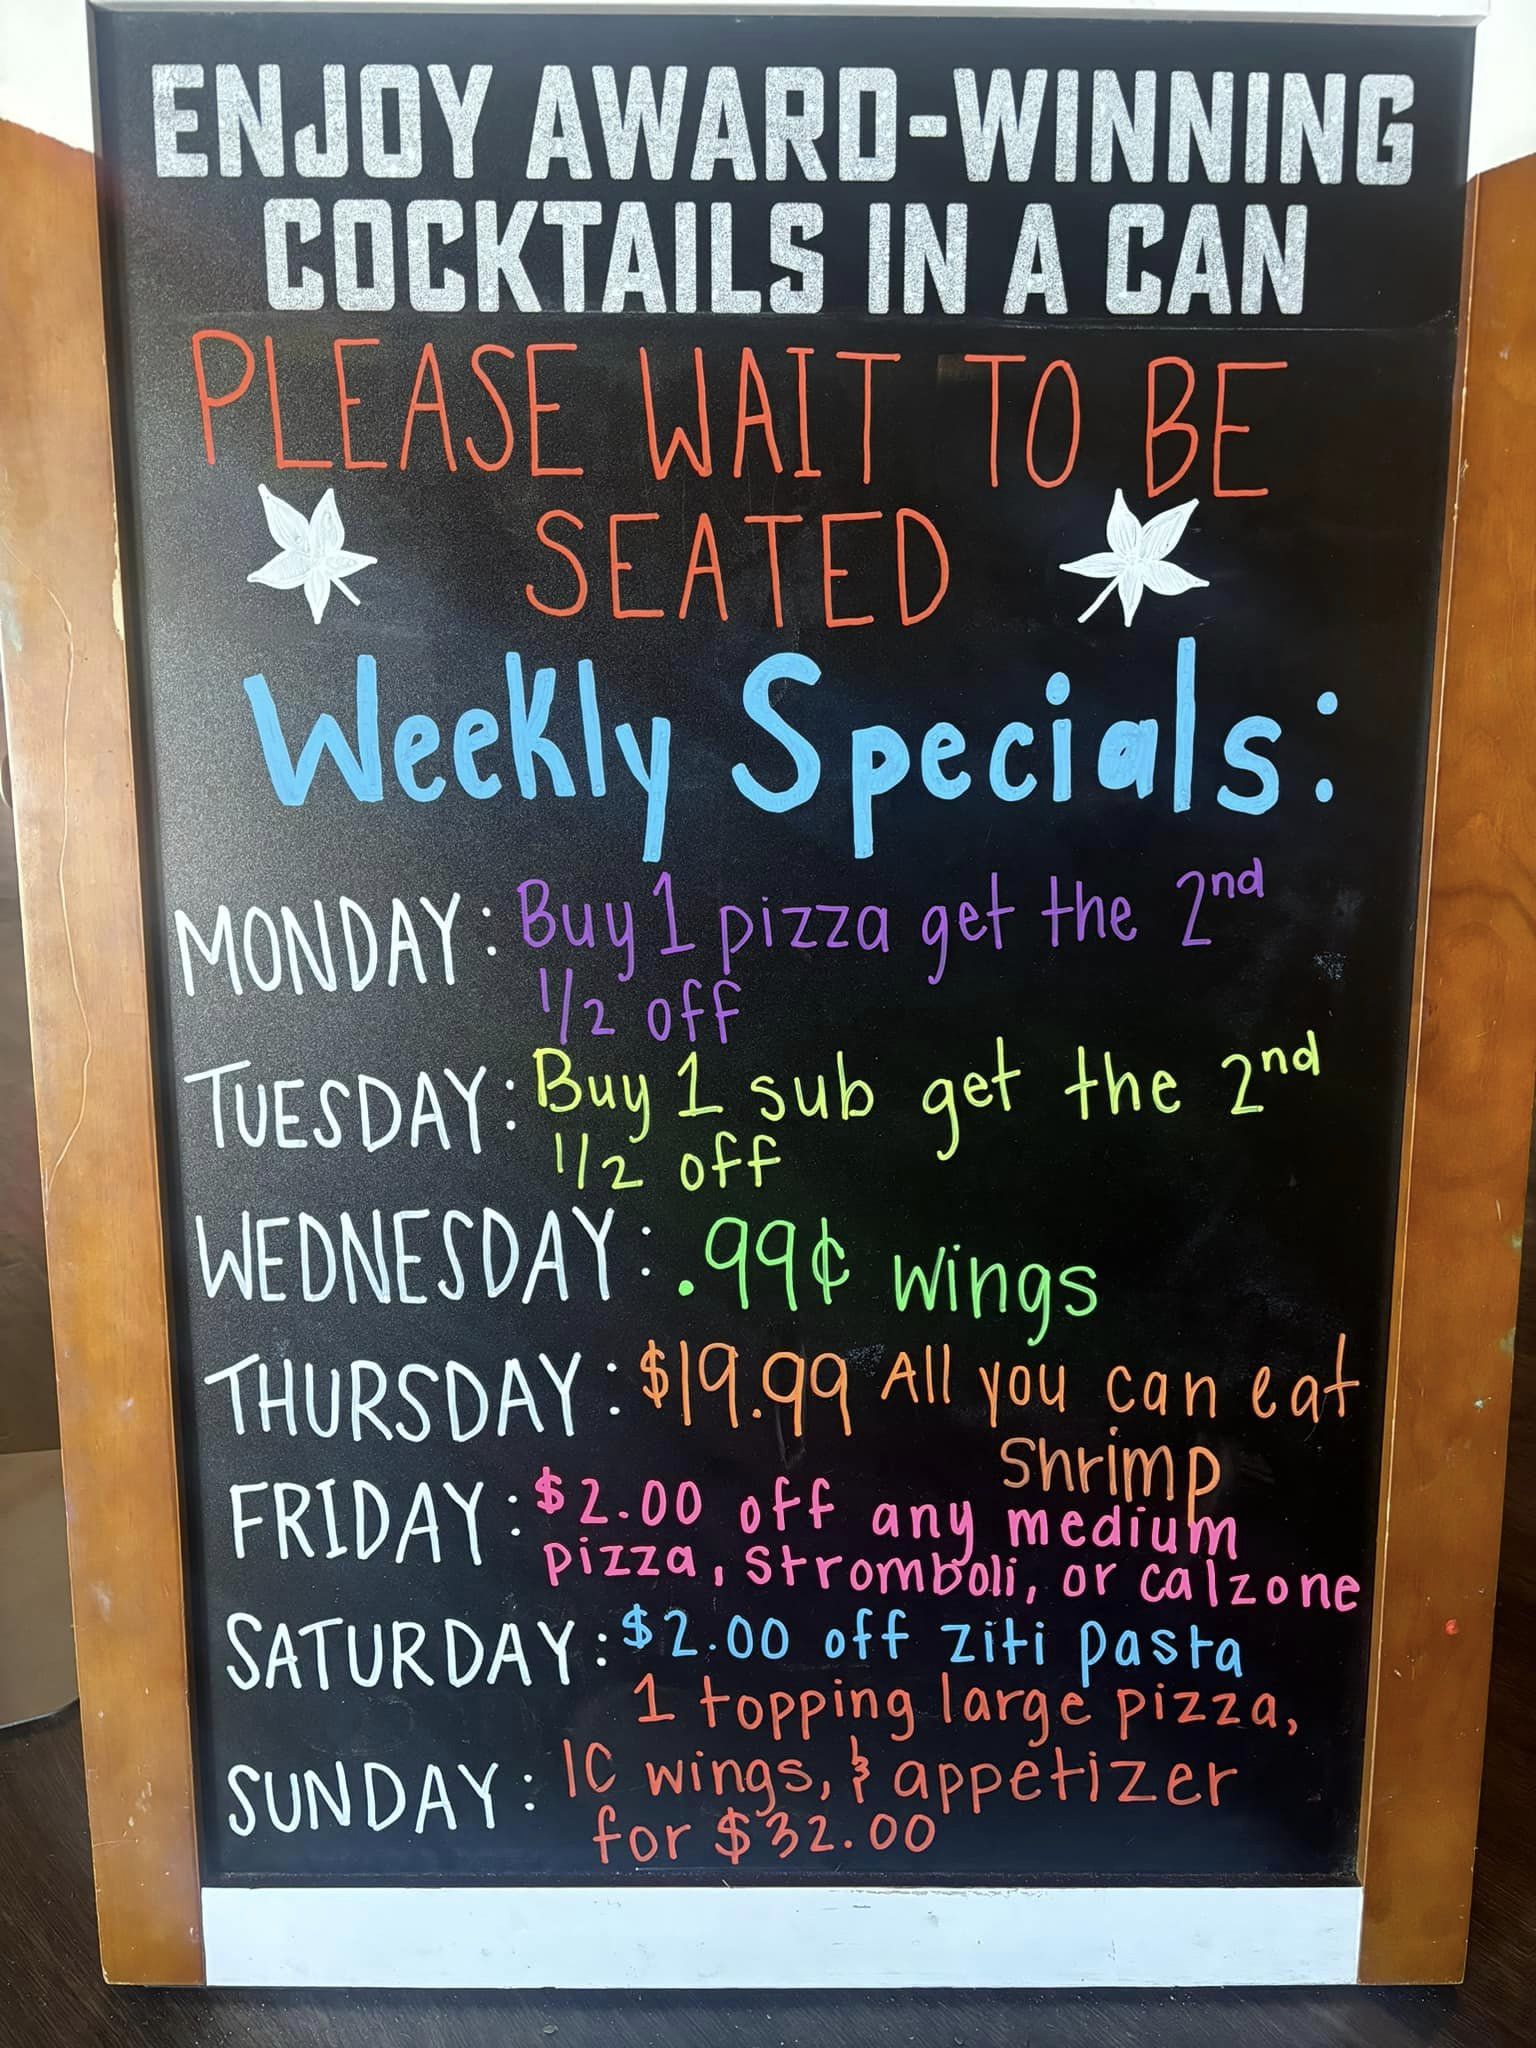 ENJOY AWARD-WINNING
COCKTAILS IN A CAN
PLEASE WAIT TO BE
SEATED
Weekly Specials:
MONDAY: Buy 1 pizza get the 2nd
1/2 off
TUESDAY: Buy 1 sub get the 2nd
1/2 off
WEDNESDAY: .99¢ wings
THURSDAY: $19.99 All you can eat
Shrimp
FRIDAY: $2.00 off any medium
pizza, stromboli, or calzone
SATURDAY: $2.00 off ziti pasta
1 topping large pizza,
SUNDAY: 10 wings, & appetizer
for $32.00